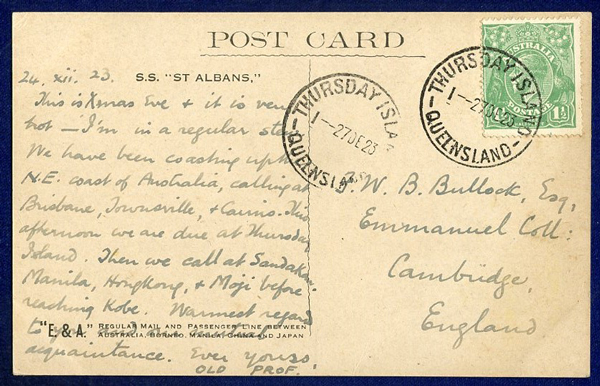 POST CARD
24. xii. 23. S.S. "ST ALBANS,"
This is Xmas Eve & it is very
hot – I'm in a regular
We have been coasting up the
N.E. coast of Australia, calling at
Brisbane, Townsville, & Cairns. This
afternoon we are due at Thursday
Island. Then we call at Sandakan,
Manila, Hongkong, & Moji before
reaching Kobe. Warmest regards
to you
"E. & A." REGULAR MAIL AND PASSENGER LINE BETWEEN
AUSTRALIA, BORNEO, MANILA, CHINA AND JAPAN
acquaintance. Ever yours,
OLD PROF.
THURSDAY ISLAN
1 – 27 DE 23
QUEENSL
THURSDAY ISLAND
1 – 27 DE 23
QUEENSLAND
AUSTRALIA
POSTAGE
1½
W. B. Bullock, Esq,
Emmanuel Coll:
Cambridge,
England